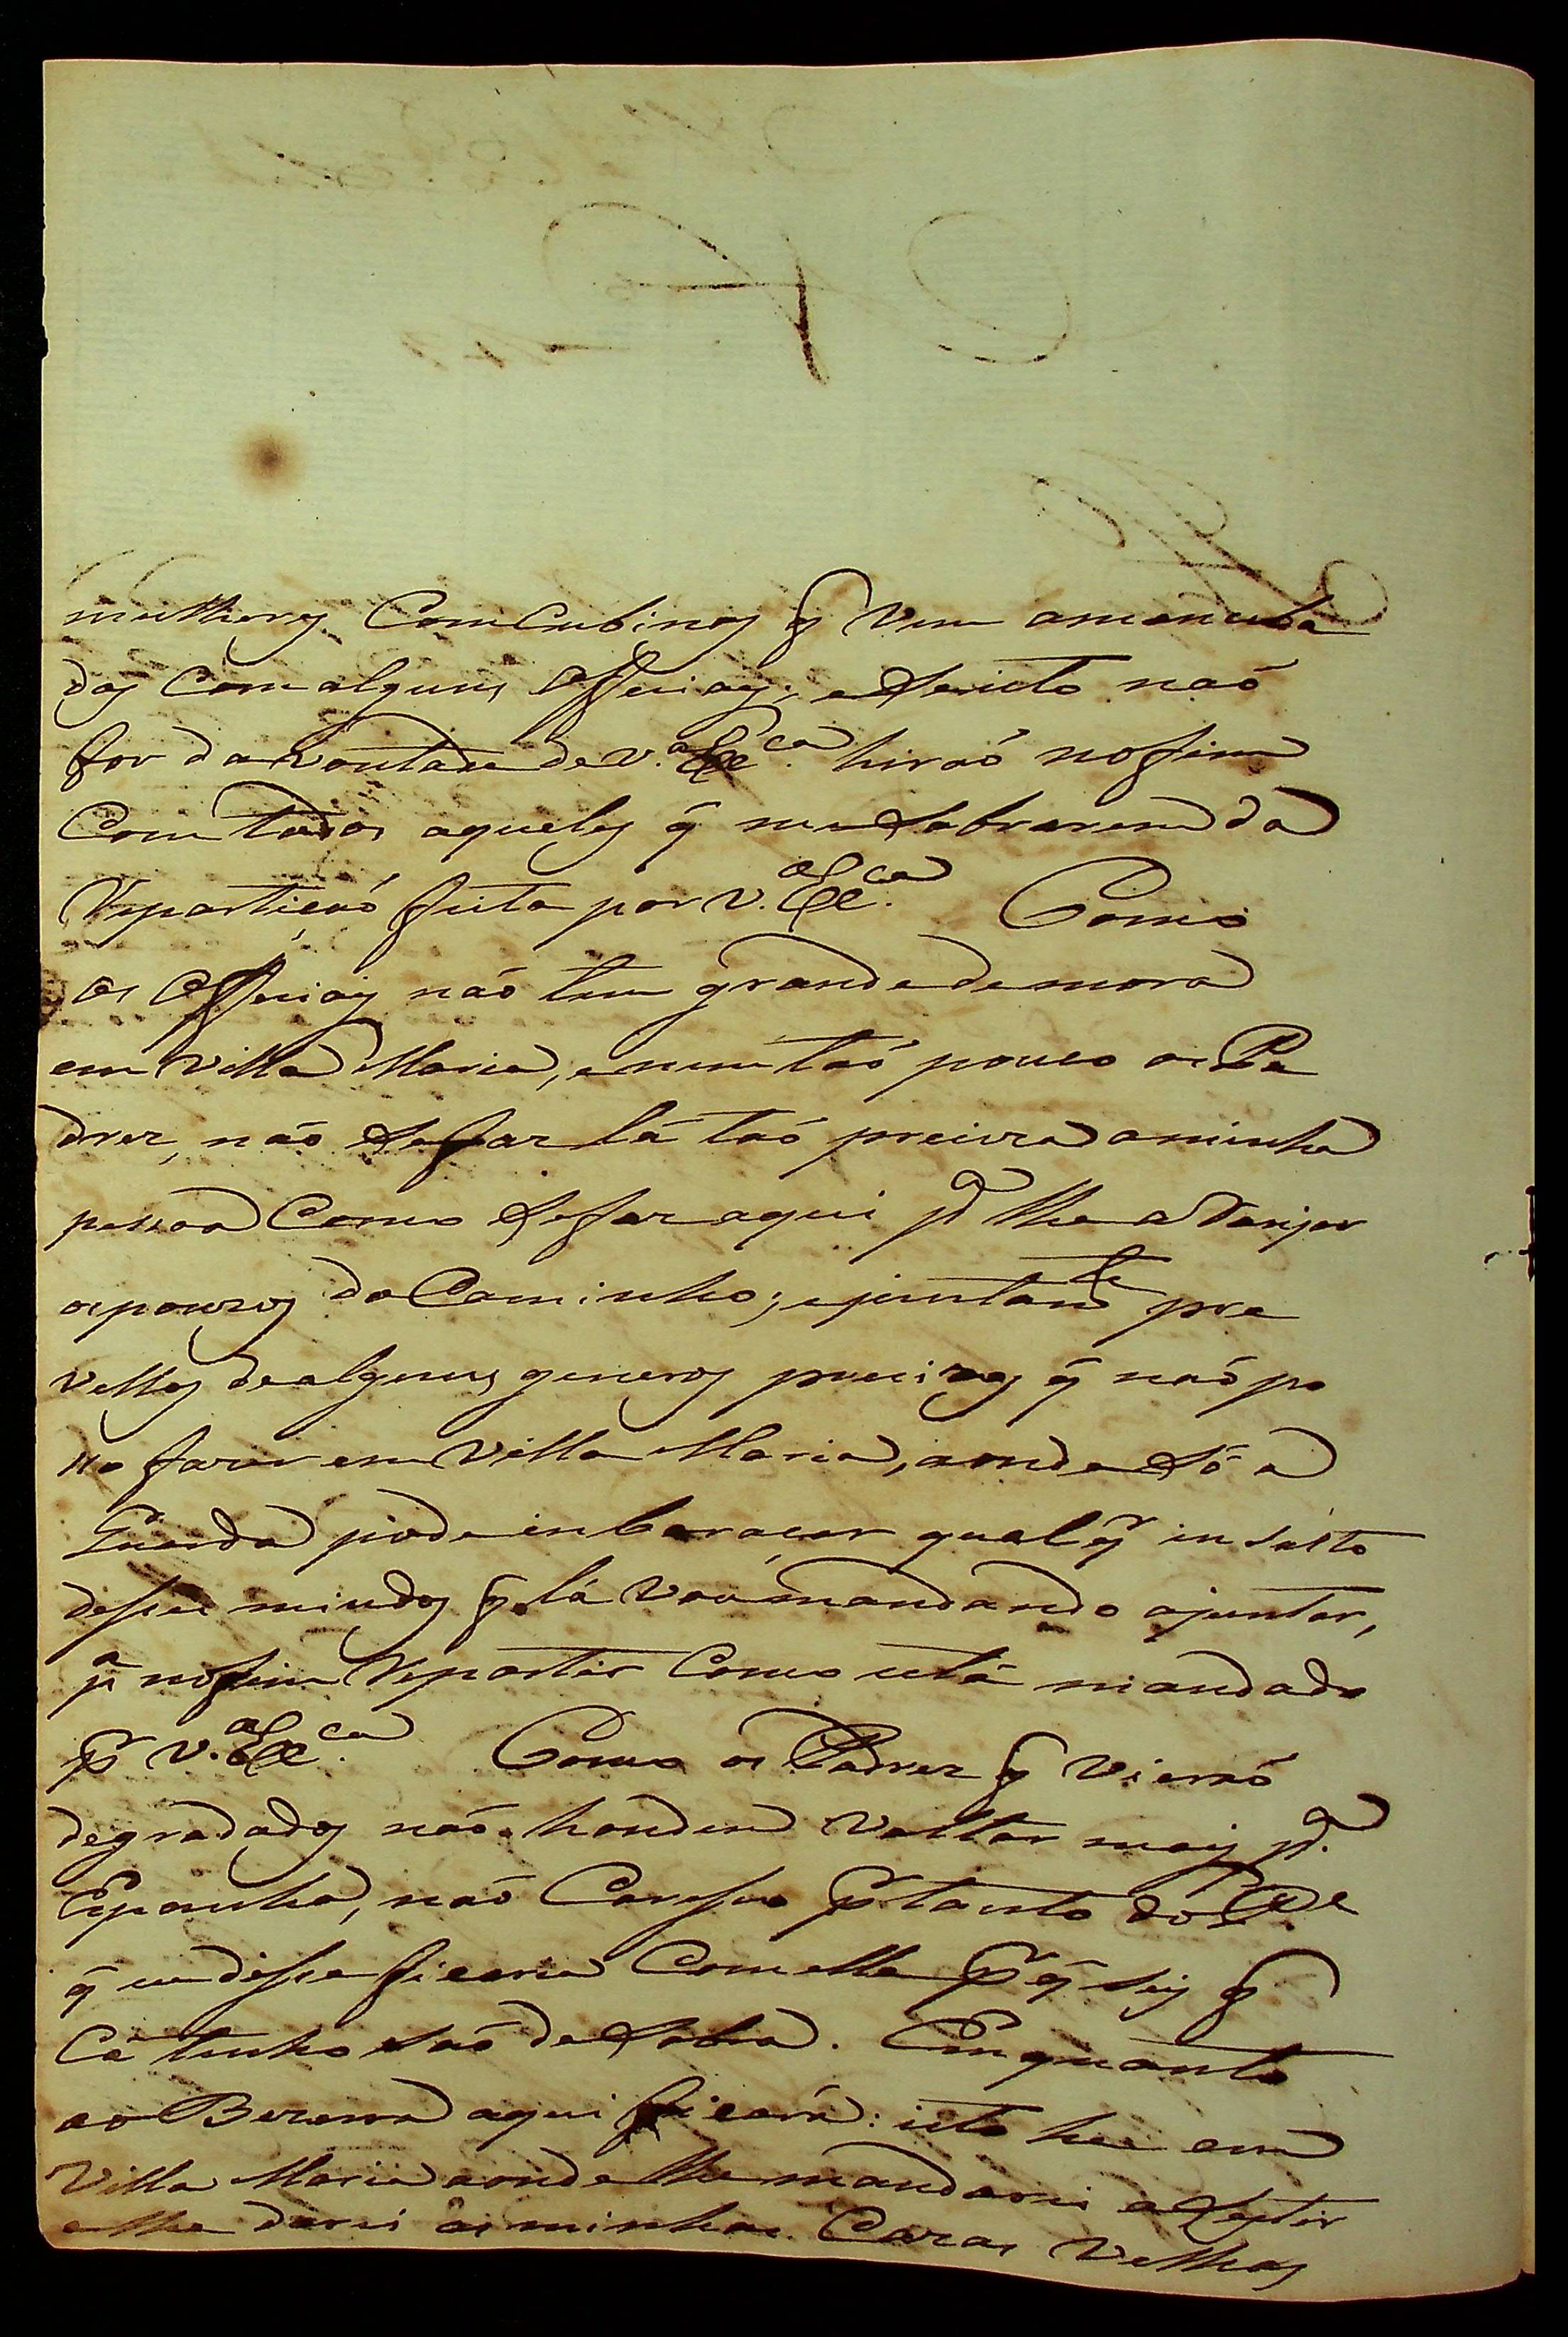 mulheres Comcubinas q̃ Vem amanceba
das Com alguns Officiaes, e Se isto naõ
for da vontade de V. Exc.ª hiraõ no fim
Com todos aqueles q̃ me Sobrarem da
Repartiçaõ feita por V. Exc.ª Como
os Officiaes naõ tem grande demora
em Villa Maria, e nem taõ pouco os Pa
dres, não Se faz lá taõ preciza a minha
pessoa Como Se faz aqui p.ª lhe aranjar
os pouzos do Caminho; e juntam.te pre
velos de alguns generos precizos q̃ naõ po
sso fazer em Villa Maria, aonde Só a
Guarda pode inbaraçar qualq.r insulto
desses miudos q̃ lá vou mandando ajuntar,
p.ª no fim Repartir Como está mandado
p.r V. Exc.ª Como os Padres q̃ Vieraõ
degradados naõ handem Voltar mais p.ª
Espanha, naõ Caresso p.r tanto do P.e
q̃ me disse ficaria Com elle p.r q̃ seis q̃
Cá tenho Saõ de Sobra. Em quanto
ao Bezerra aqui ficará: isto he em
Villa Maria aonde lhe mandarei
e lhe darei as minhas Cazas Velhas